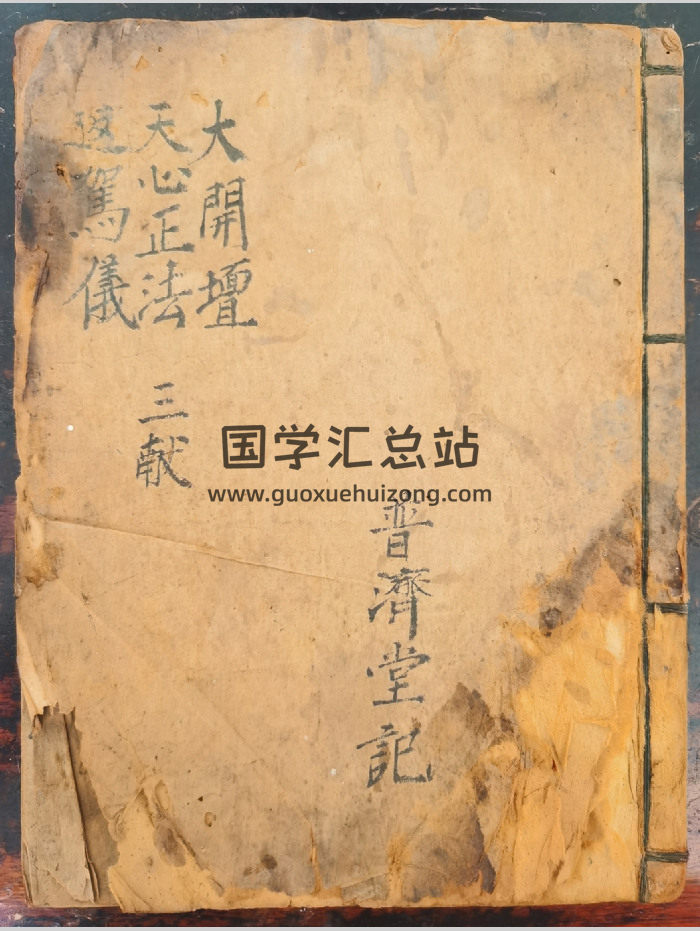 大開壇
天心正法
駕儀
三献
普濟堂記
国学汇总站
www.guoxuehuizong.com